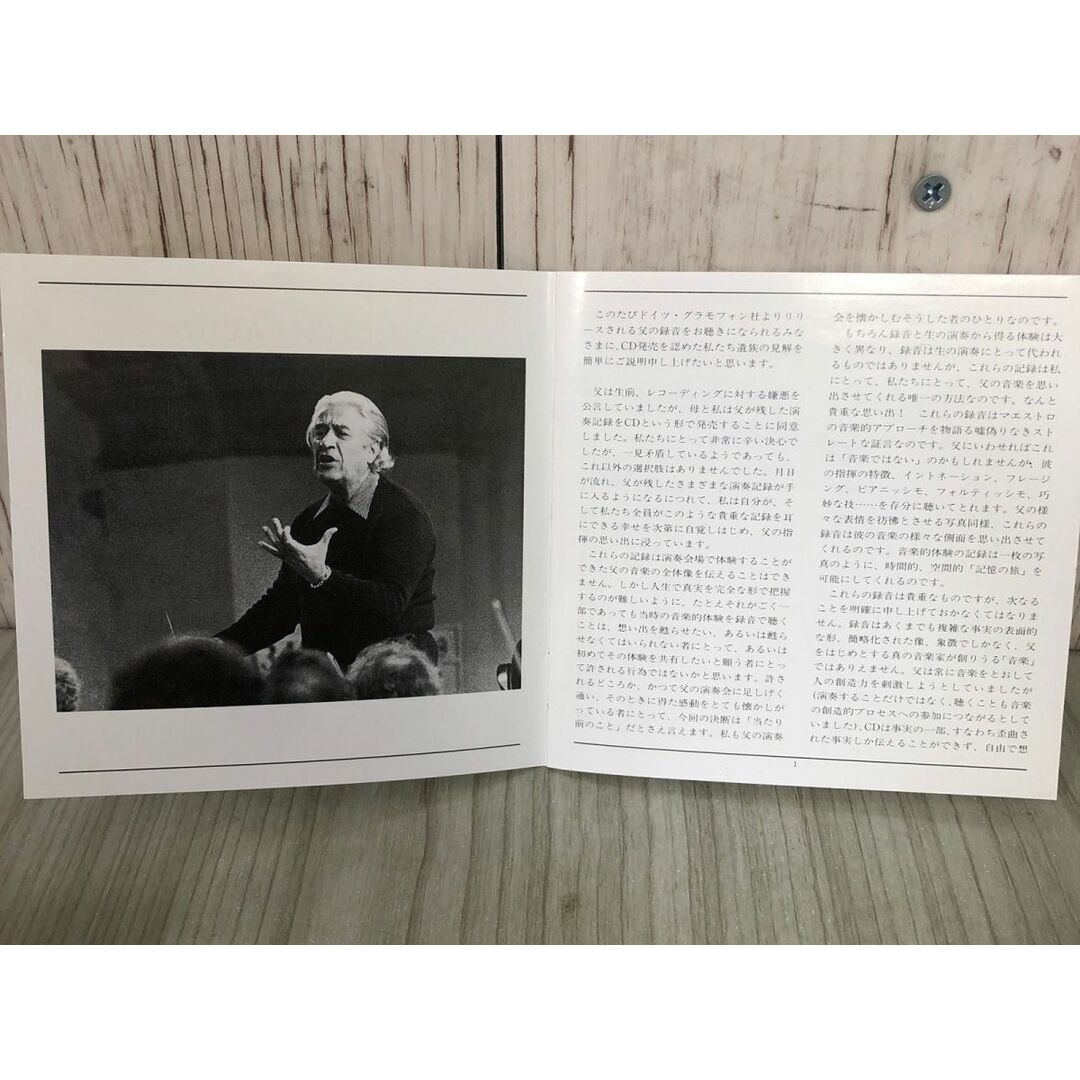 このたびドイツ・グラモフォン社よりリリ
ースされる父の録音をお聴きになられるみな
さまに、CD発売を認めた私たち遺族の見解を
簡単にご説明申し上げたいと思います。
父は生前、レコーディングに対する嫌悪を
公言していましたが、母と私は父が残した演
奏記録をCDという形で発売することに同意
しました。私たちにとって非常に辛い決心で
したが、一見矛盾しているようであっても、
これ以外の選択肢はありませんでした。月日
が流れ、父が残したさまざまな演奏記録が手
に入るようになるにつれて、私は自分が、そ
して私たち全員がこのような貴重な記録を耳
にできる幸せを次第に自覚しはじめ、父の指
揮の思い出に浸っています。
これらの記録は演奏会場で体験することが
できた父の音楽の全体像を伝えることはでき
ません。しかし人生で真実を完全な形で把握
するのが難しいように、たとえそれがごく一
部であっても当時の音楽的体験を録音で聴く
ことは、想い出を甦らせたい、あるいは甦ら
せなくてはいられない者にとって、あるいは
初めてその体験を共有したいと願う者にとっ
て許される行為ではないかと思います。許さ
れるどころか、かつて父の演奏会に足しげく
通い、そのときに得た感動をとても懐かしが
っている者にとって、今回の決断は「当たり
前のこと」だとさえ言えます。私も父の演奏
会を懐かしむそうした者のひとりなのです。
もちろん録音と生の演奏から得る体験は大
きく異なり、録音は生の演奏にとって代われ
るものではありませんが、これらの記録は私
にとって、私たちにとって、父の音楽を思い
出させてくれる唯一の方法なのです。なんと
貴重な思い出！　これらの録音はマエストロ
の音楽的アプローチを物語る嘘偽りなきスト
レートな証言なのです。父にいわせればこれ
は「音楽ではない」のかもしれませんが、彼
の指揮の特徴、イントネーション、フレージ
ング、ピアニッシモ、フォルティッシモ、巧
妙な技……を存分に聴いてとれます。父の様
々な表情を彷彿とさせる写真同様、これらの
録音は彼の音楽の様々な側面を思い出させて
くれるのです。音楽的体験の記録は一枚の写
真のように、時間的、空間的「記憶の旅」を
可能にしてくれるのです。
これらの録音は貴重なものですが、次なる
ことを明確に申し上げておかなくてはなりま
せん。録音はあくまでも複雑な事実の表面的
な形、簡略化された像、象徴でしかなく、父
をはじめとする真の音楽家が創りうる「音楽」
ではありえません。父は常に音楽をとおして
人の創造力を刺激しようとしていましたが
(演奏することだけではなく、聴くことも音楽
の創造的プロセスへの参加につながるとして
いました)、CDは事実の一部、すなわち歪曲さ
れた事実しか伝えることができず、自由で想
1